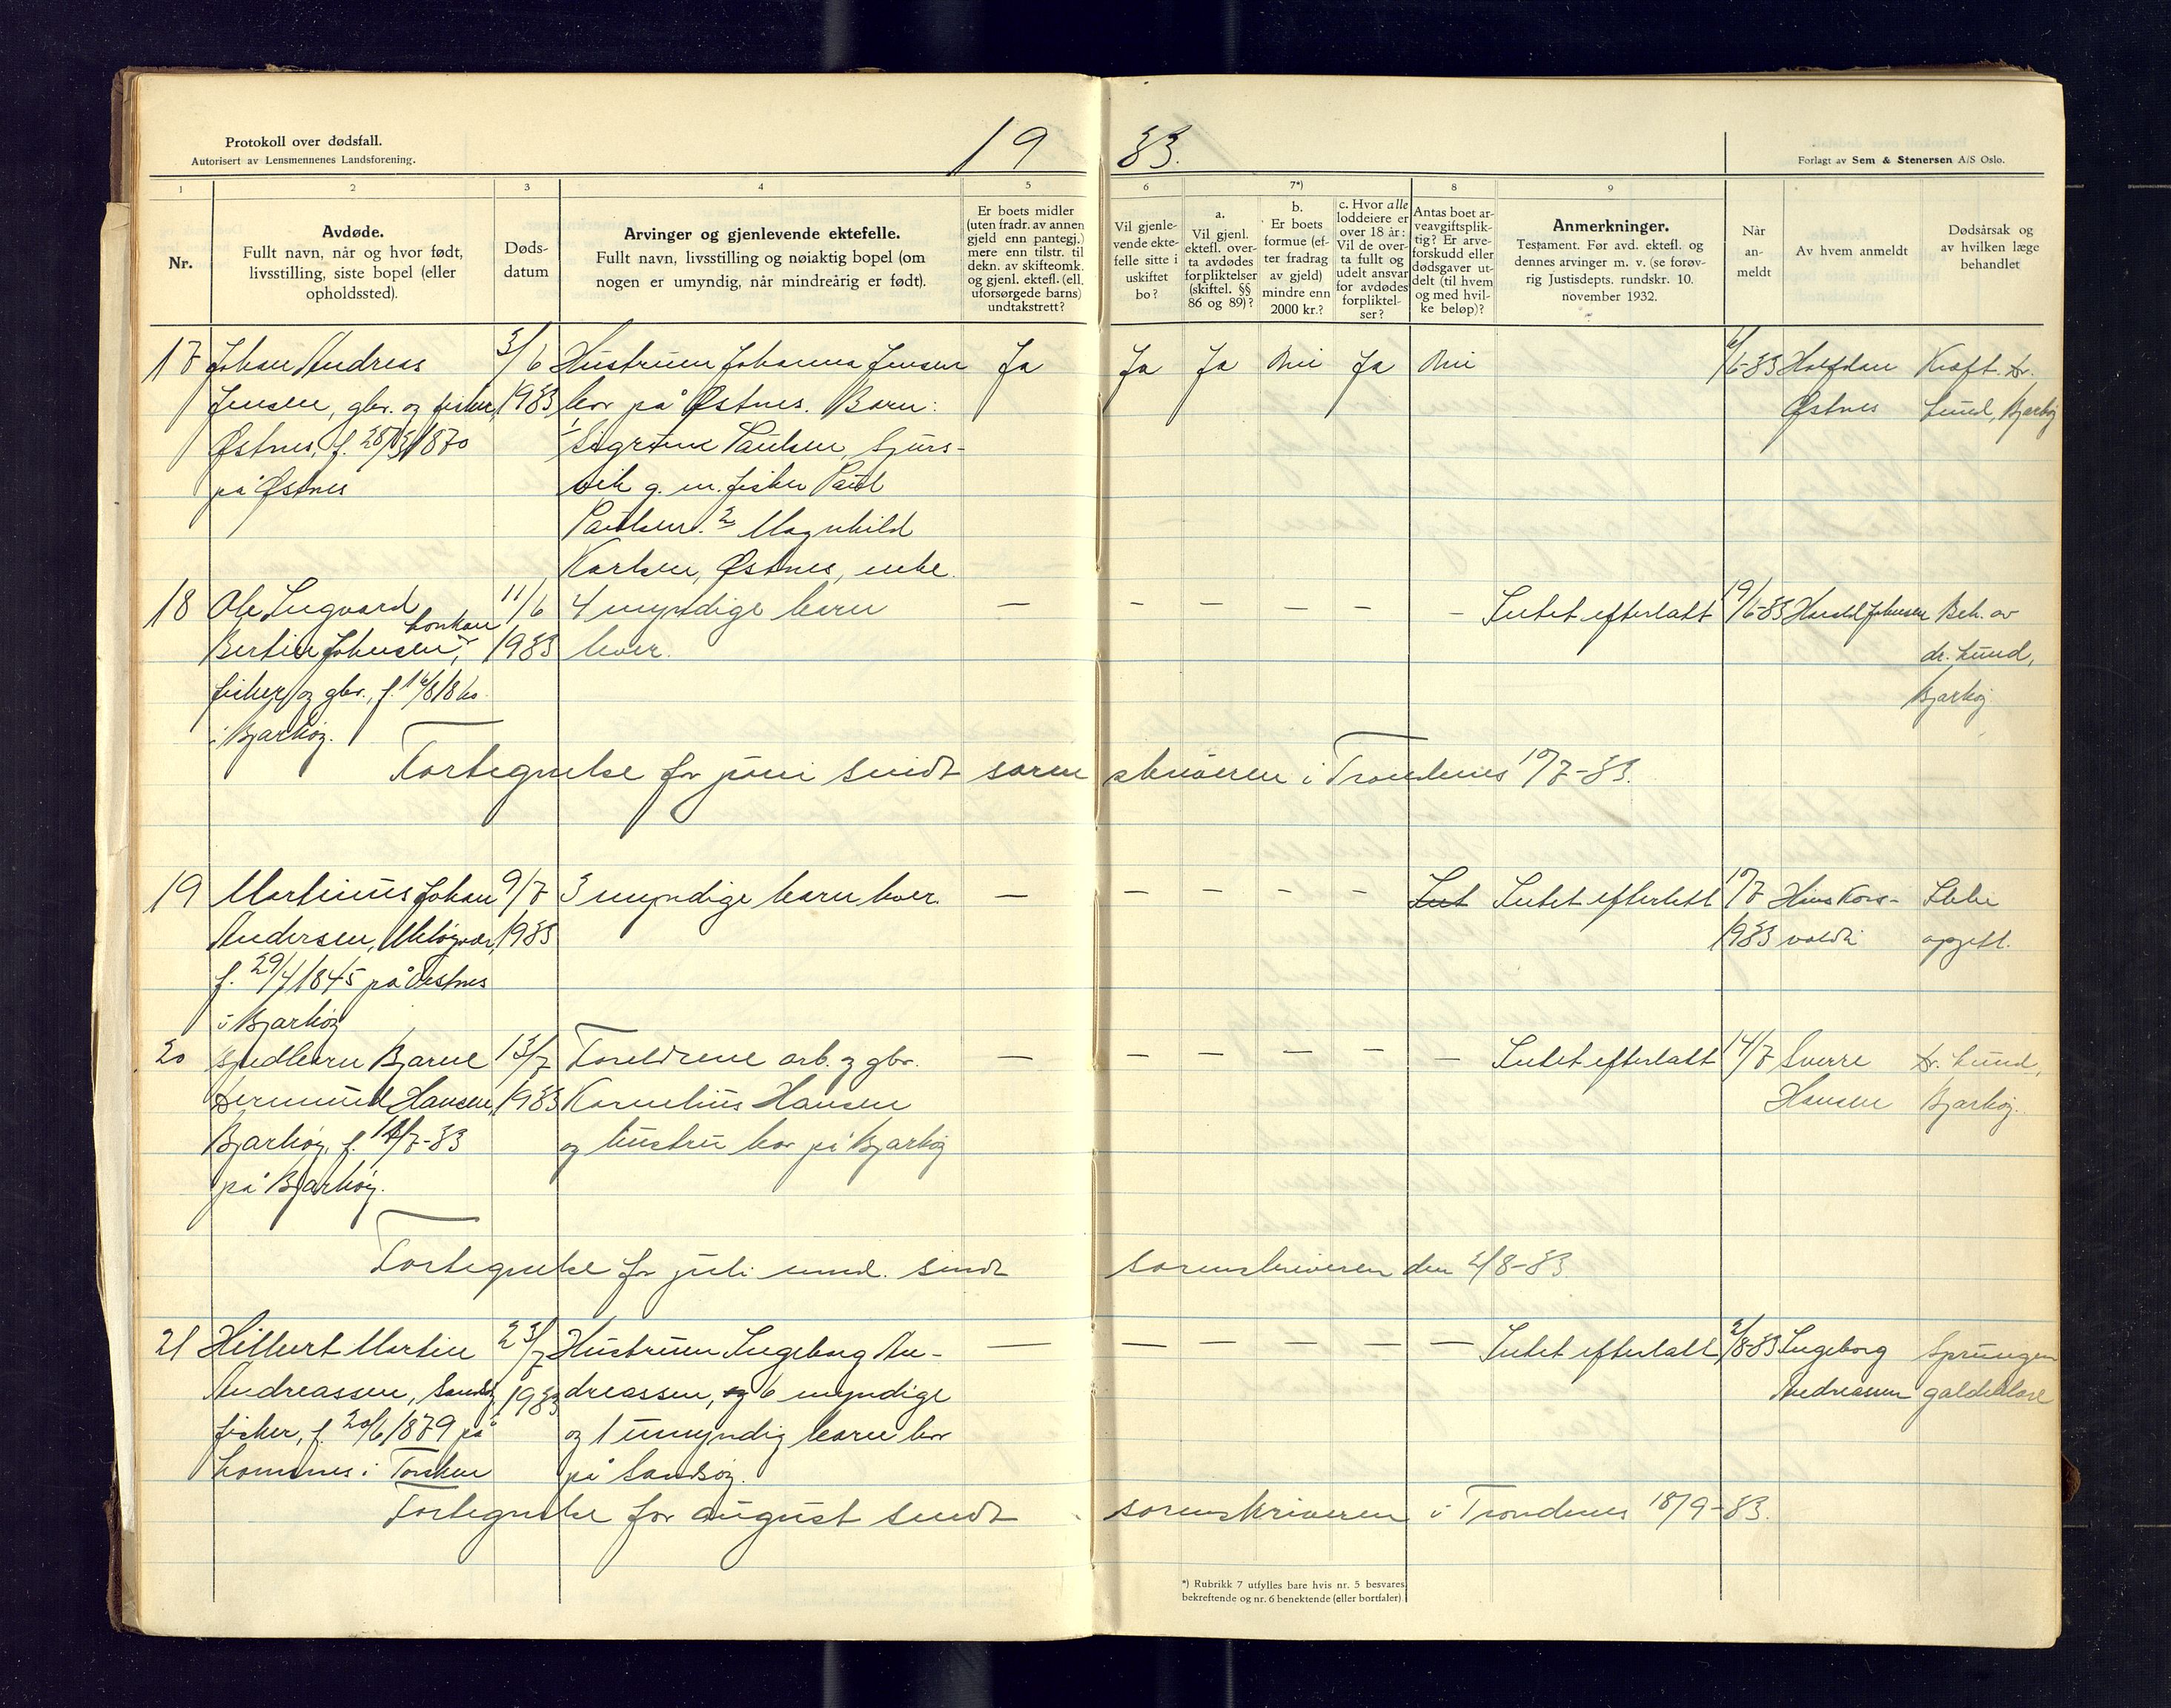 Protokoll over dødsfall.
Autorisert av Lensmennenes Landsforening.
19 33.
Forlagt av Sem & Stenersen A/S Oslo.
1 2 3 4 5 6 7*) 8 9
Nr.
Avdøde.
Fullt navn, når og hvor født,
livsstilling, siste bopel (eller
opholdssted).
Døds-
datum
Arvinger og gjenlevende ektefelle.
Fullt navn, livsstilling og nøiaktig bopel (om
nogen er umyndig, når mindreårig er født).
Er boets midler
(uten fradr. av annen
gjeld enn pantegj.)
mere enn tilstr. til
dekn. av skifteomk.
og gjenl. ektef. (ell.
uforsørgede barns)
undtakstrett?
Vil gjenle-
vende ekte-
felle sitte i
uskiftet
bo?
a.
Vil gjenl.
ektefl. over-
ta avdødes
forpliktelser
(skiftel. §§
86 og 89)?
b.
Er boets
formue (ef-
ter fradrag
av gjeld)
mindre enn
2000 kr.?
c. Hvor alle
loddeiere er
over 18 år:
Vil de over-
ta fullt og
udelt ansvar
for avdødes
forpliktel-
ser?
Antas boet ar-
veavgiftsplik-
tig? Er arve-
forskudd eller
dødsgaver ut-
delt (til hvem
og med hvil-
ke beløp)?
Anmerkninger.
Testament. Før avd. ektefl. og
dennes arvinger m. v. (se forøv-
rig Justisdepts. rundskr. 10.
november 1932.
Når
an-
meldt
Av hvem anmeldt
Dødsårsak og
av hvilken læge
behandlet
17 Johan Andreas 3/6 Hustruen Johanna Jensen Ja Ja Ja Nei Ja Nei 6/6-33 Halfdan Kræft. Dr.
Jensen, gbr. og fisker, 1933 bor på Østnes. Barn: Østnes Lund, Bjarkøy
Østnes, f. 28/3 1870 1/ Paulsen, Sjurs-
på Østnes vik g. m. fisker Paul
Paulsen. 2/ Magnhild
Karlsen, Østnes, enke.
18 Ole Ingvard 11/6 4 myndige barn — - - - - - Intet efterlatt 19/6-33 Harald Johnsen Beh. av
Bertin Johnsen, 1933 lever. dr. Lund,
fisker og gbr., f. Bjarkøy
i Bjarkøy.
Fortegnelse for juni sendt sorenskriveren i Trondenes 10/7-33.
19 Martinus Johan 9/7 3 myndige barn lever. — - - - - Int Intet efterlatt 10/7 Hans Kors- Ikke
Andersen, 1933 1933 voldti opgitt.
f. 29/4 1845 på Østnes
i Bjarkøy
20 Spedbarn Bjarne 13/7 Foreldrene arb. og gbr. — - - - - - Intet efterlatt 14/7 Sverre Dr. Lund,
Hansen, 1933 Kornelius Hansen Hansen Bjarkøy.
Bjarkøy, f. 7-33 og hustru bor på Bjarkøy
på Bjarkøy.
Fortegnelse for juli mnd. sendt sorenskriveren den 2/8-33
21 Hilbert Martin 23/7 Hustruen Ingeborg An- — — — — — — Intet efterlatt 2/8-33 Ingeborg Sprungen
Andreassen, 1933 dreassen, og 6 myndige Andreassen galdeblære
fisker, f. 20/6 1879 på og 1 umyndig barn bor
i Torsken på Sandsøy.
Fortegnelse for august sendt sorenskriveren i Trondenes 18/9-33.
*) Rubrikk 7 utfylles bare hvis nr. 5 besvares
bekreftende og nr. 6 benektende (eller bortfaler)